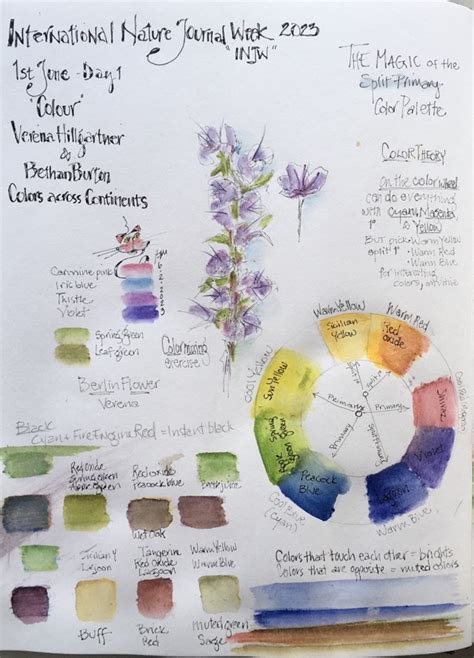 International Nature Journal Week 2023
"INJW"
1st June - Day 1
"Colour"
Verena Hillgärtner
&
Bethan Burton
Colors across Continents
THE MAGIC of the
Split Primary
Color Palette
COLOR THEORY
on the color wheel
can do everything
with Cyan, Magenta
& Yellow
But pick
Warm Yellow
split 1°
Warm Red
Warm Blue
for interesting
colors
Carmine pink
Iric blue
Thistle
Violet
6-2-2023
Spring green
Leaf green
Color mixing
exercise
Berlin Flower
Verena
Black
Cyan + Fire Engine Red = Instant black
Warm Yellow
Warm Red
Cool Yellow
Sicilian
Yellow
Red
oxide
Sun Yellow
Shiraz
Spring
Green
Violet
Apple
Green
Peacock
Blue
Lagoon
Cool Blue
(Cyan)
Warm Blue
Primary
Primary
Primary
Split Primary
Red oxide
Spring green
Apple green
Red oxide
Peacock blue
Wet Oak
Sicilian Y
Lagoon
Tangerine
Red oxide
Lagoon
Warm Yellow
Warm Blue
Buff
Brick
Red
Muted green
Colors that touch each other = brights
Colors that are opposite = muted colors